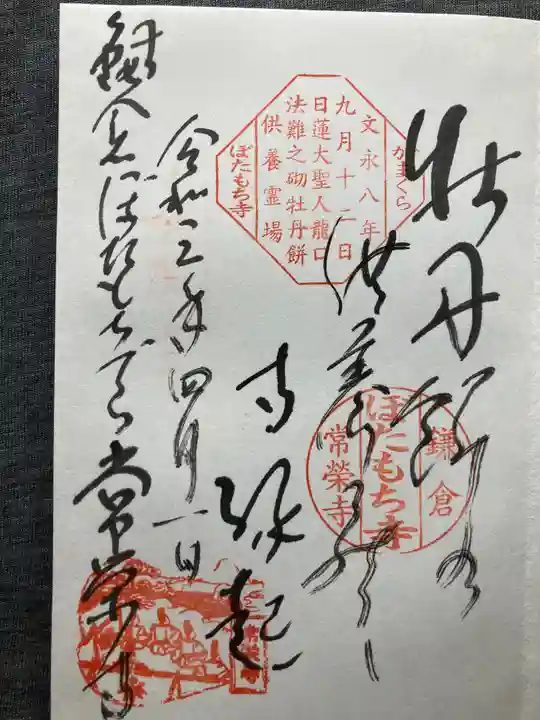 牡丹餅の
供養
寺縁起
令和三年四月一日
鎌倉ぼたもちでら常栄寺
かまくら
文永八年
九月十二日
日蓮大聖人龍口
法難之砌牡丹餅
供養霊場
ぼたもち寺
鎌倉
ぼたもち寺
常榮寺